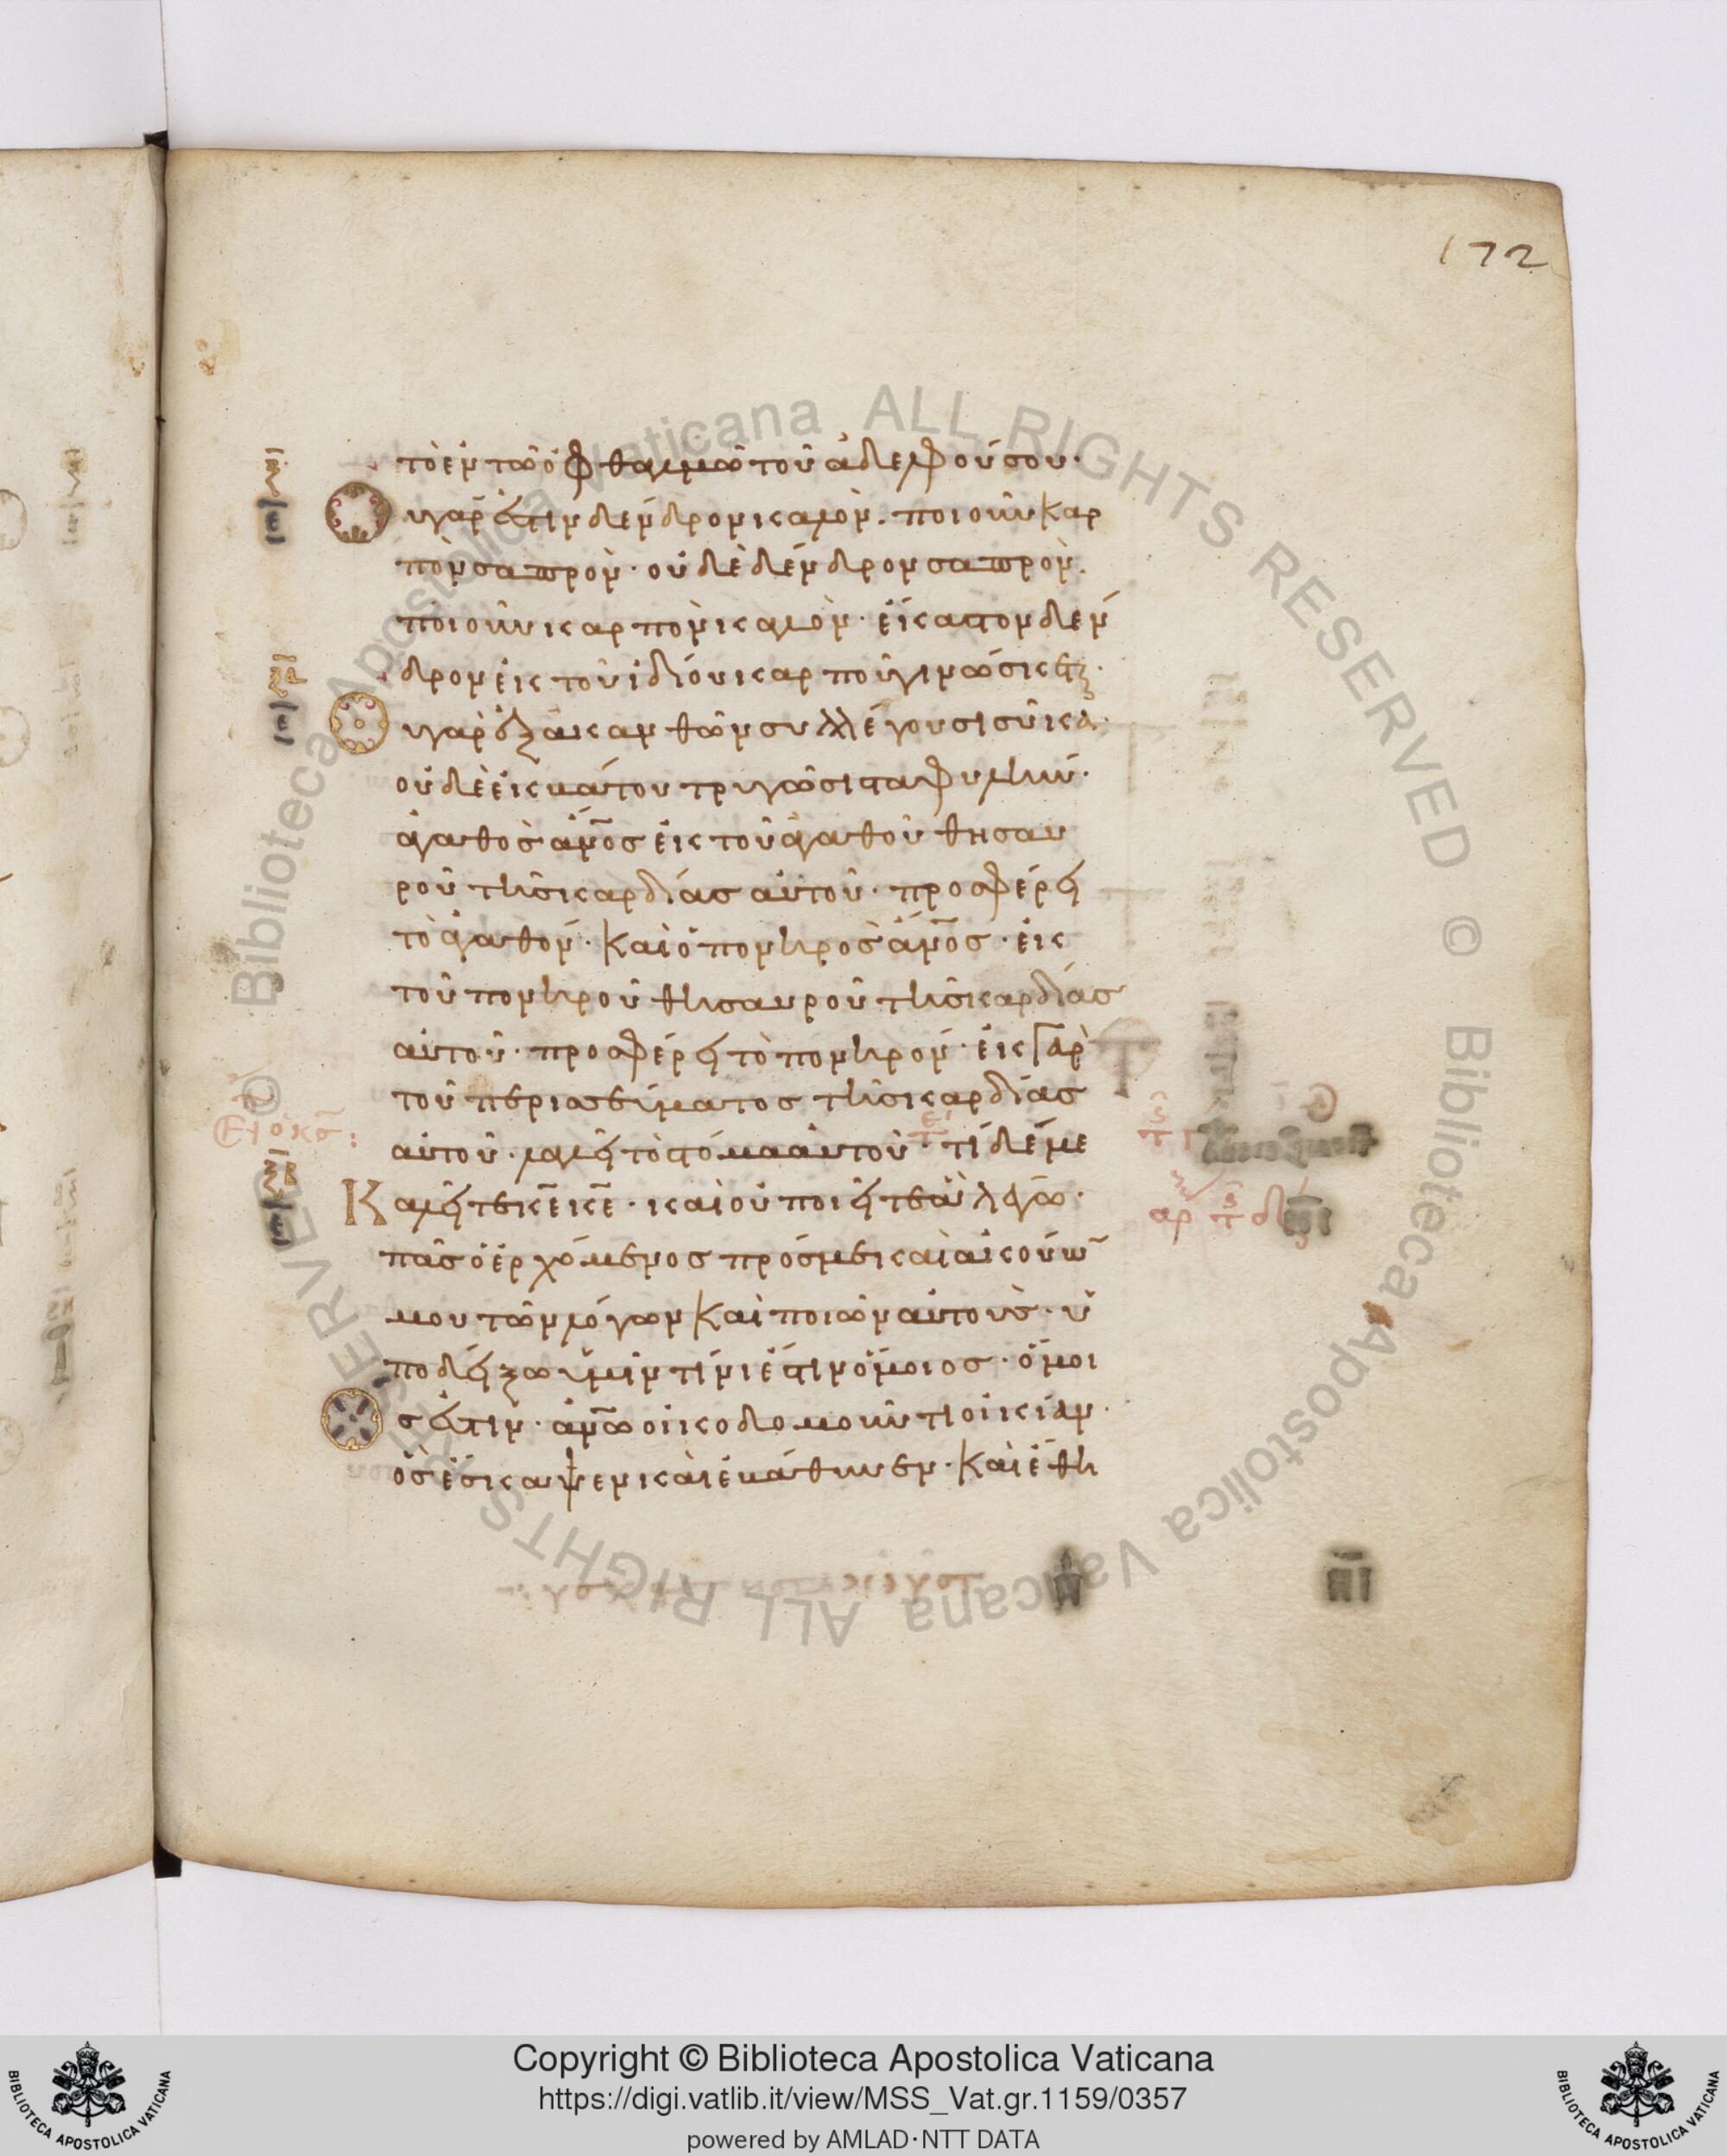 172
τὸ ἐν τῶ ὀφθαλμῶ τοῦ ἀδελφού σου·
Οὐ γάρ ἐστιν δένδρον καλὸν. ποιοῦν καρ
πὸν σαπρὸν· οὐδὲ δένδρον σαπρὸν.
ποιοῦν καρπὸν καλὸν· ἕκαστον δέν
δρον ἐκ τοῦ ἰδίου καρποῦ γινώσκεται·
Οὐ γὰρ ἐξ ἀκανθῶν συλλέγουσι σῦκα·
οὐδὲ ἐκ βάτου τρυγῶσι σταφυλήν·
ὁ ἀγαθὸς ἄνος ἐκ τοῦ ἀγαθοῦ θησαυ
ροῦ τῆς καρδίας αὐτοῦ· προσφέρει
τὸ ἀγαθόν· Καὶ ὁ πονηρὸς ἄνος· ἐκ
τοῦ πονηροῦ θησαυροῦ τῆς καρδίας
αὐτοῦ· προσφέρει τὸ πονηρόν· ἐκ γὰρ
τοῦ περισσεύματος τῆς καρδίας
αὐτοῦ· λαλεῖ τὸ στόμα αὐτοῦ· τί δέ με
Καλεῖτε κε κε· καὶ οὐ ποιεῖτε ἃ λέγω·
πᾶς ὁ ἐρχόμενος πρός με καὶ ἀκούω
μου τῶν λόγων Καὶ ποιῶν αὐτούς· ὑ
ποδείξω ὑμῖν τίνι ἐστιν ὅμοιος· ὅμοι
Ος ἐστιν· ἀνω οἰκοδομοῦντι οἰκίαν·
ὃς ἔσκαψεν καὶ ἐβάθυνεν· Καὶ ἔθη
Copyright © Biblioteca Apostolica Vaticana
https://digi.vatlib.it/view/MSS_Vat.gr.1159/0357
powered by AMLAD·NTT DATA
BIBLIOTECA APOSTOLICA VATICANA
BIBLIOTECA APOSTOLICA VATICANA
© Biblioteca Apostolica Vaticana ALL RIGHTS RESERVED © Biblioteca Apostolica Vaticana ALL RIGHTS RESERVED